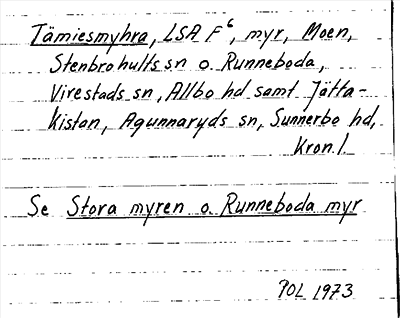 Tämiesmyhra, LSA F⁶, myr, Moen,
Stenbrohults sn o. Runneboda,
Virestads sn, Allbo hd samt Jätta-
kistan, Agunnaryds sn, Sunnerbo hd,
Kron. l.
Se Stora myren o. Runneboda myr
POL 1973